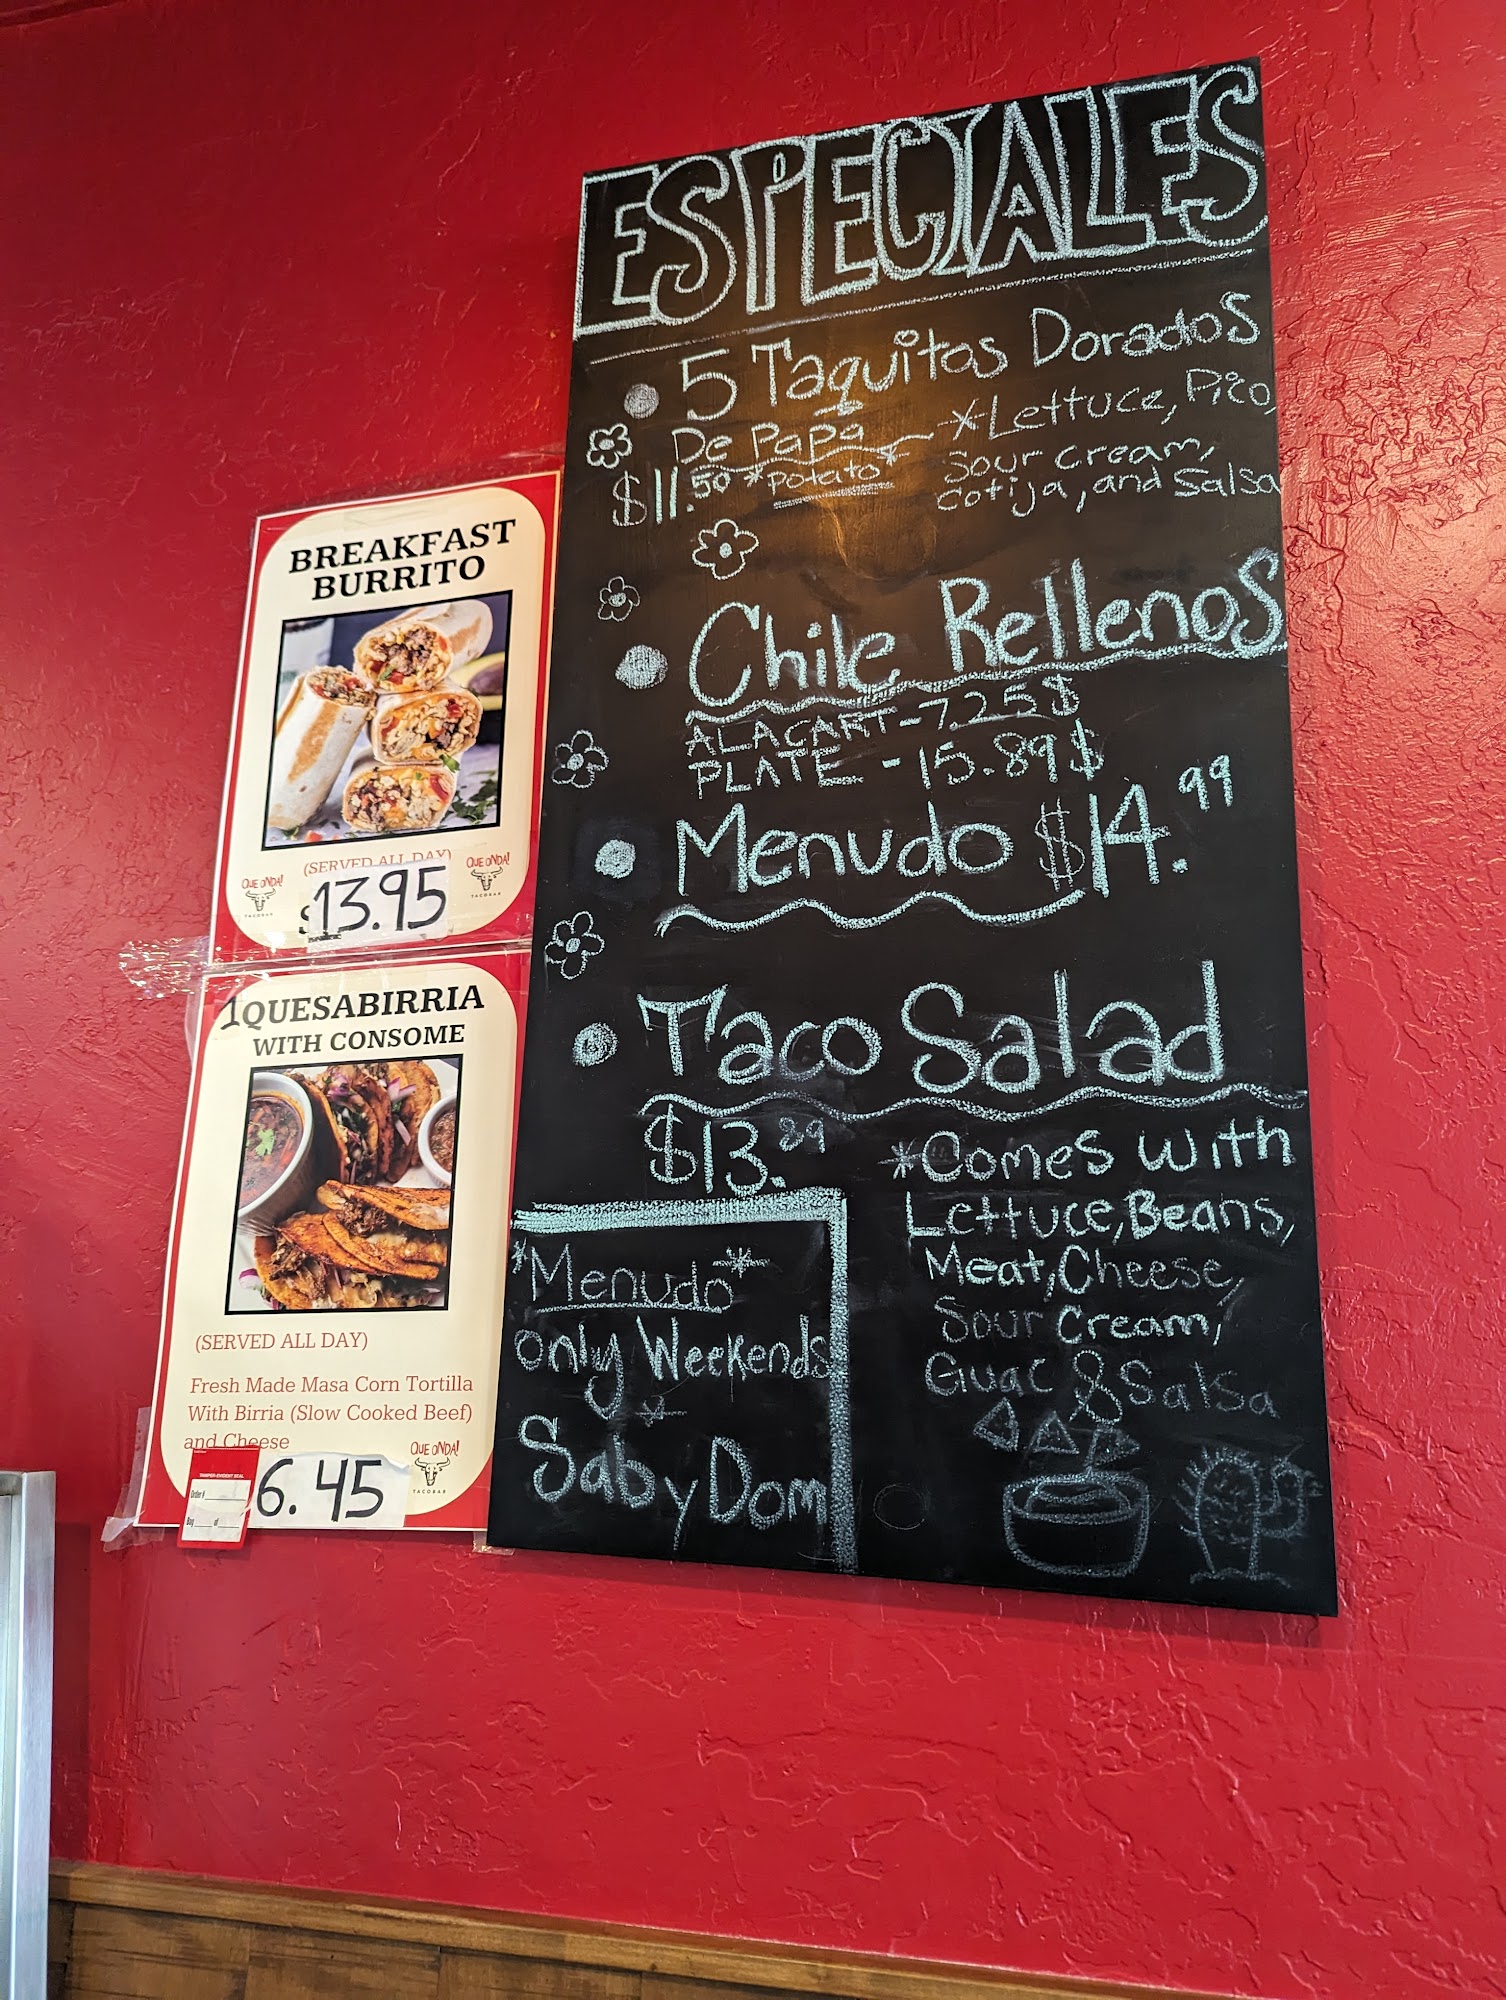 ESPECIALES
5 Taquitos Dorados
De Papa
*Potato*
$11.50
*Lettuce, Pico,
Sour cream,
cotija, and Salsa
Chile Rellenos
ALACART-7.25$
PLATE -15.89$
Menudo $14.99
Taco Salad
$13.89
*Comes with
Lettuce, Beans,
Meat, Cheese,
Sour Cream,
Guac & Salsa
*Menudo*
only Weekends
Sab y Dom
BREAKFAST
BURRITO
(SERVED ALL DAY)
QUE ONDA!
TACOBAR
$13.95
QUE ONDA!
TACOBAR
1QUESABIRRIA
WITH CONSOME
(SERVED ALL DAY)
Fresh Made Masa Corn Tortilla
With Birria (Slow Cooked Beef)
and Cheese
6.45
QUE ONDA!
TACOBAR
TAMPER-EVIDENT SEAL
Order #
Bag of